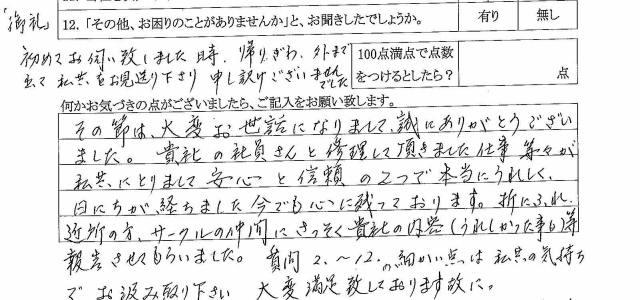 「御礼」
12.「その他、お困りのことがありませんか」と、お聞きしたでしょうか。
有り
無し
初めてお伺い致しました時、帰りぎわ、外まで
出て私共をお見送り下さり 申し訳けございませんでした
100点満点で点数
をつけるとしたら?
点
何かお気づきの点がございましたら、ご記入をお願い致します。
その節は、大変お世話になりまして、誠にありがとうござい
ました。貴社の社員さんと修理して頂きました仕事等々が
私共にとりまして 安心と信頼の2つで本当にうれしく、
日にちが、経ちました今でも心に残っております。折にふれ、
近所の方、サークルの仲間にさっそく貴社の内容(うれしかった事も)等
報告させてもらいました。質問2.〜12.の細かい点は私共の気持ち
でお汲み取り下さい 大変満足致しております故に。